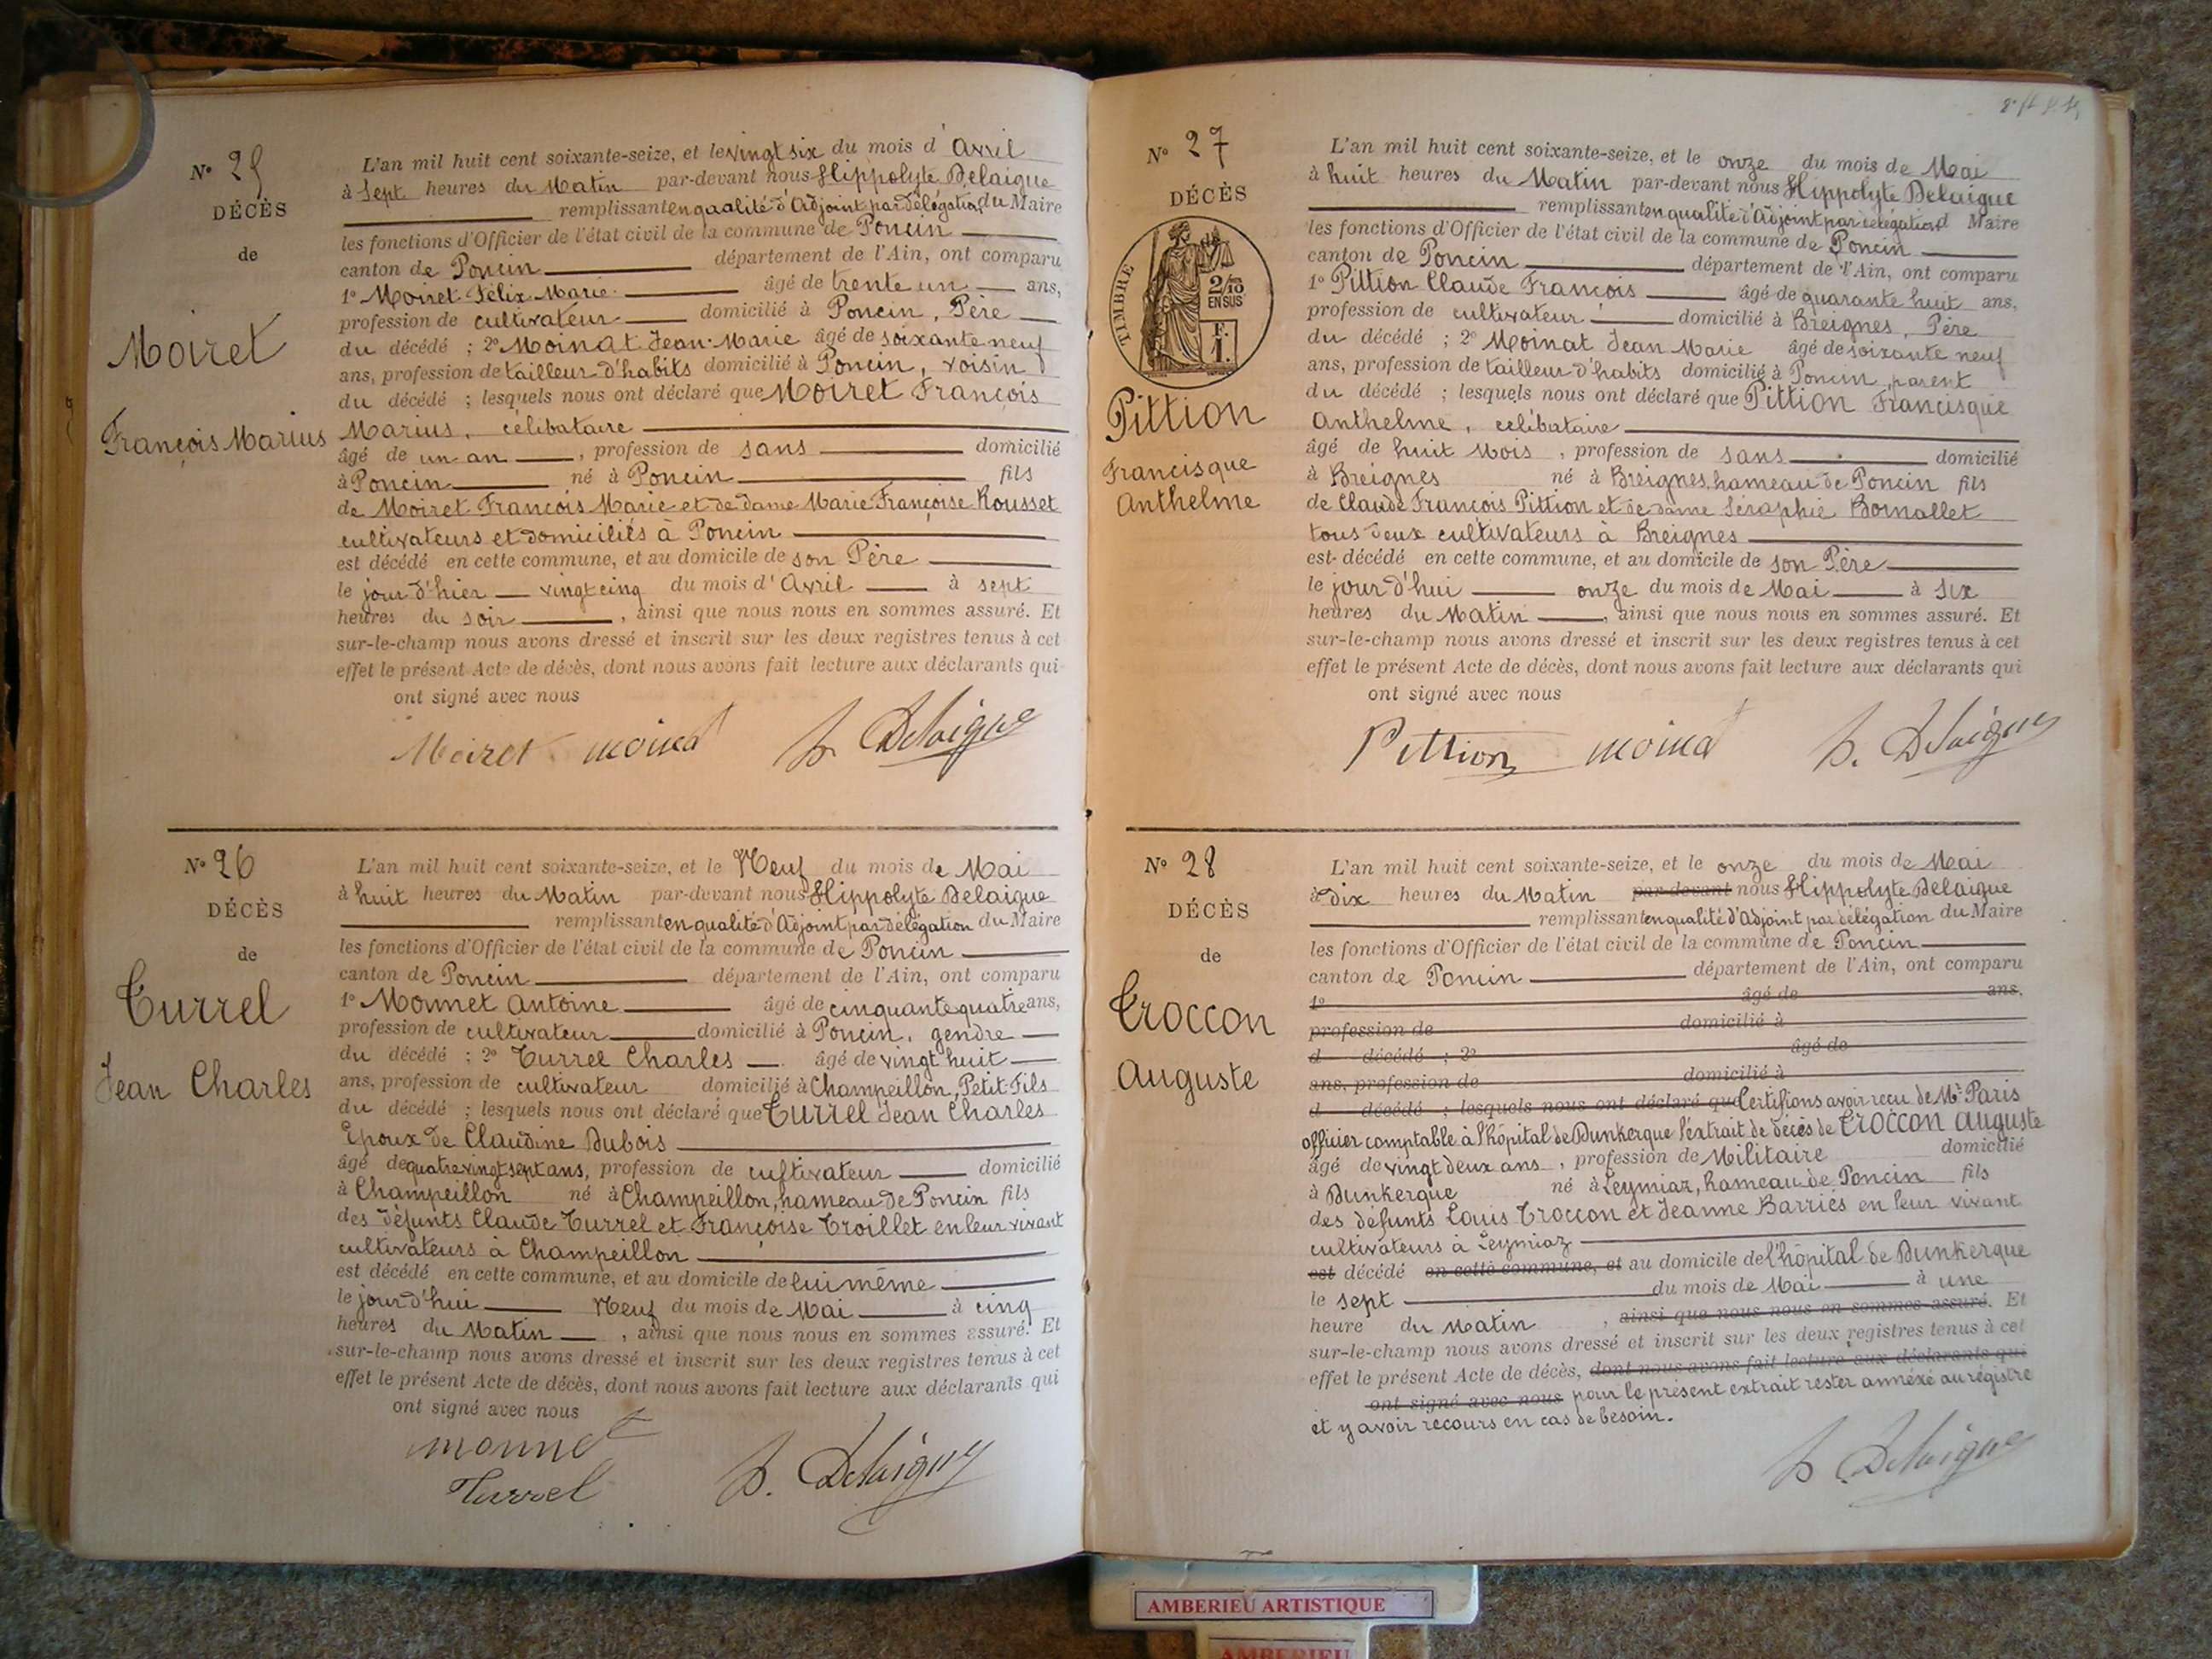 N° 25
DÉCÈS
de
Moiret
François Marius
L'an mil huit cent soixante-seize, et le vingt six du mois d' Avril
à Sept heures du Matin par-devant nous Hippolyte Delaigue
remplissant en qualité d'Adjoint par délégation du Maire
les fonctions d'Officier de l'état civil de la commune de Poncin
canton de Poncin département de l'Ain, ont comparu
1° Moiret Félix Marie âgé de trente un ans,
profession de cultivateur domicilié à Poncin, Père
du décédé ; 2° Moinat Jean-Marie âgé de soixante neuf
ans, profession de tailleur d'habits domicilié à Poncin, voisin
du décédé ; lesquels nous ont déclaré que Moiret François
Marius, célibataire
âgé de un an , profession de sans domicilié
à Poncin né à Poncin fils
de Moiret François Marie et de dame Marie Françoise Rousset
cultivateurs et domiciliés à Poncin
est décédé en cette commune, et au domicile de son Père
le jour d'hier vingt cinq du mois d' Avril à sept
heures du soir , ainsi que nous nous en sommes assuré. Et
sur-le-champ nous avons dressé et inscrit sur les deux registres tenus à cet
effet le présent Acte de décès, dont nous avons fait lecture aux déclarants qui
ont signé avec nous
Moiret moinat h. Delaigue
N° 26
DÉCÈS
de
Turrel
Jean Charles
L'an mil huit cent soixante-seize, et le Neuf du mois de Mai
à huit heures du Matin par-devant nous Hippolyte Delaigue
remplissant en qualité d'Adjoint par délégation du Maire
les fonctions d'Officier de l'état civil de la commune de Poncin
canton de Poncin département de l'Ain, ont comparu
1° Monnet Antoine âgé de cinquante quatre ans,
profession de cultivateur domicilié à Poncin, gendre
du décédé ; 2° Turrel Charles âgé de vingt huit
ans, profession de cultivateur domicilié à Champeillon, Petit Fils
du décédé ; lesquels nous ont déclaré que Turrel Jean Charles
Epoux de Claudine Dubois
âgé de quatre vingt sept ans, profession de cultivateur domicilié
à Champeillon né à Champeillon, hameau de Poncin fils
des défunts Claude Turrel et Françoise Troillet en leur vivant
cultivateurs à Champeillon
est décédé en cette commune, et au domicile de lui même
le jour d'hui Neuf du mois de Mai à cinq
heures du Matin , ainsi que nous nous en sommes assuré. Et
sur-le-champ nous avons dressé et inscrit sur les deux registres tenus à cet
effet le présent Acte de décès, dont nous avons fait lecture aux déclarants qui
ont signé avec nous
monnet
Turrel h. Delaigue
N° 27
DÉCÈS
TIMBRE
2/10
EN SUS
F.
1.
Pittion
Francisque
Anthelme
L'an mil huit cent soixante-seize, et le onze du mois de Mai
à huit heures du Matin par-devant nous Hippolyte Delaigue
remplissant en qualité d'Adjoint par délégation d Maire
les fonctions d'Officier de l'état civil de la commune de Poncin
canton de Poncin département de l'Ain, ont comparu
1° Pittion Claude François âgé de quarante huit ans,
profession de cultivateur domicilié à Breignes, Père
du décédé ; 2° Moinat Jean Marie âgé de soixante neuf
ans, profession de tailleur d'habits domicilié à Poncin, parent
du décédé ; lesquels nous ont déclaré que Pittion Francisque
Anthelme, célibataire
âgé de huit Mois , profession de sans domicilié
à Breignes né à Breignes, hameau de Poncin fils
de Claude François Pittion et de dame Séraphie Bornallet
tous deux cultivateurs à Breignes
est décédé en cette commune, et au domicile de son Père
le jour d'hui onze du mois de Mai à six
heures du Matin , ainsi que nous nous en sommes assuré. Et
sur-le-champ nous avons dressé et inscrit sur les deux registres tenus à cet
effet le présent Acte de décès, dont nous avons fait lecture aux déclarants qui
ont signé avec nous
Pittion moinat h. Delaigue
N° 28
DÉCÈS
de
Troccon
Auguste
L'an mil huit cent soixante-seize, et le onze du mois de Mai
à dix heures du Matin par-devant nous Hippolyte Delaigue
remplissant en qualité d'Adjoint par délégation du Maire
les fonctions d'Officier de l'état civil de la commune de Poncin
canton de Poncin département de l'Ain, ont comparu
1° âgé de ans,
profession de domicilié à
d décédé ; 2° âgé de
ans, profession de domicilié à
d décédé ; lesquels nous ont déclaré que Certifions avoir reçu de Mr Paris
officier comptable à l'hôpital de Dunkerque l'extrait de décès de Troccon Auguste
âgé de vingt deux ans , profession de Militaire domicilié
à Dunkerque né à Leymiaz, hameau de Poncin fils
des défunts Louis Troccon et Jeanne Barriés en leur vivant
cultivateurs à Leymiaz
est décédé en cette commune, et au domicile de l'hôpital de Dunkerque
le sept du mois de Mai à une
heure du Matin , ainsi que nous nous en sommes assuré. Et
sur-le-champ nous avons dressé et inscrit sur les deux registres tenus à cet
effet le présent Acte de décès, dont nous avons fait lecture aux déclarants qui
ont signé avec nous pour le présent extrait rester annexé au régistre
et y avoir recours en cas de besoin.
h Delaigue
AMBERIEU ARTISTIQUE
AMBERIEU